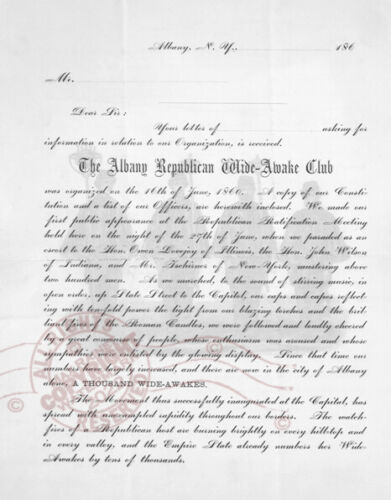 Albany, N. Y., 186
Mr.
Dear Sir:
Your letter of asking for
information in relation to our Organization, is received.
The Albany Republican Wide-Awake Club
was organized on the 16th of June, 1860. A copy of our Consti-
tution and a list of our Officers, are herewith inclosed. We made our
first public appearance at the Republican Ratification Meeting
held here on the night of the 27th of June, when we paraded as an
escort to the Hon. Owen Lovejoy of Illinois, the Hon. John Wilson
of Indiana, and Mr. Tschirnes of New-York, mustering above
two hundred men. As we marched, to the sound of stirring music, in
open order, up State Street to the Capitol, our caps and capes reflect-
ing with tenfold power the light from our blazing torches and the bril-
liant fires of the Roman Candles, we were followed and loudly cheered
by a great concourse of people, whose enthusiasm was aroused and whose
sympathies were enlisted by the glowing display. Since that time our
numbers have largely increased, and there are now in the city of Albany
alone, A THOUSAND WIDE-AWAKES.
The Movement thus successfully inaugurated at the Capital, has
spread with unexampled rapidity throughout our borders. The watch-
fires of a Republican host are burning brightly on every hilltop and
in every valley, and the Empire State already numbers her Wide-
Awakes by tens of thousands.